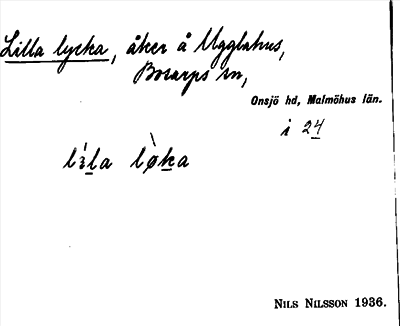 Lilla lycka, åker å Ugglahus,
Bosarps sn,
Onsjö hd, Malmöhus län.
i 24
NILS NILSSON 1936.